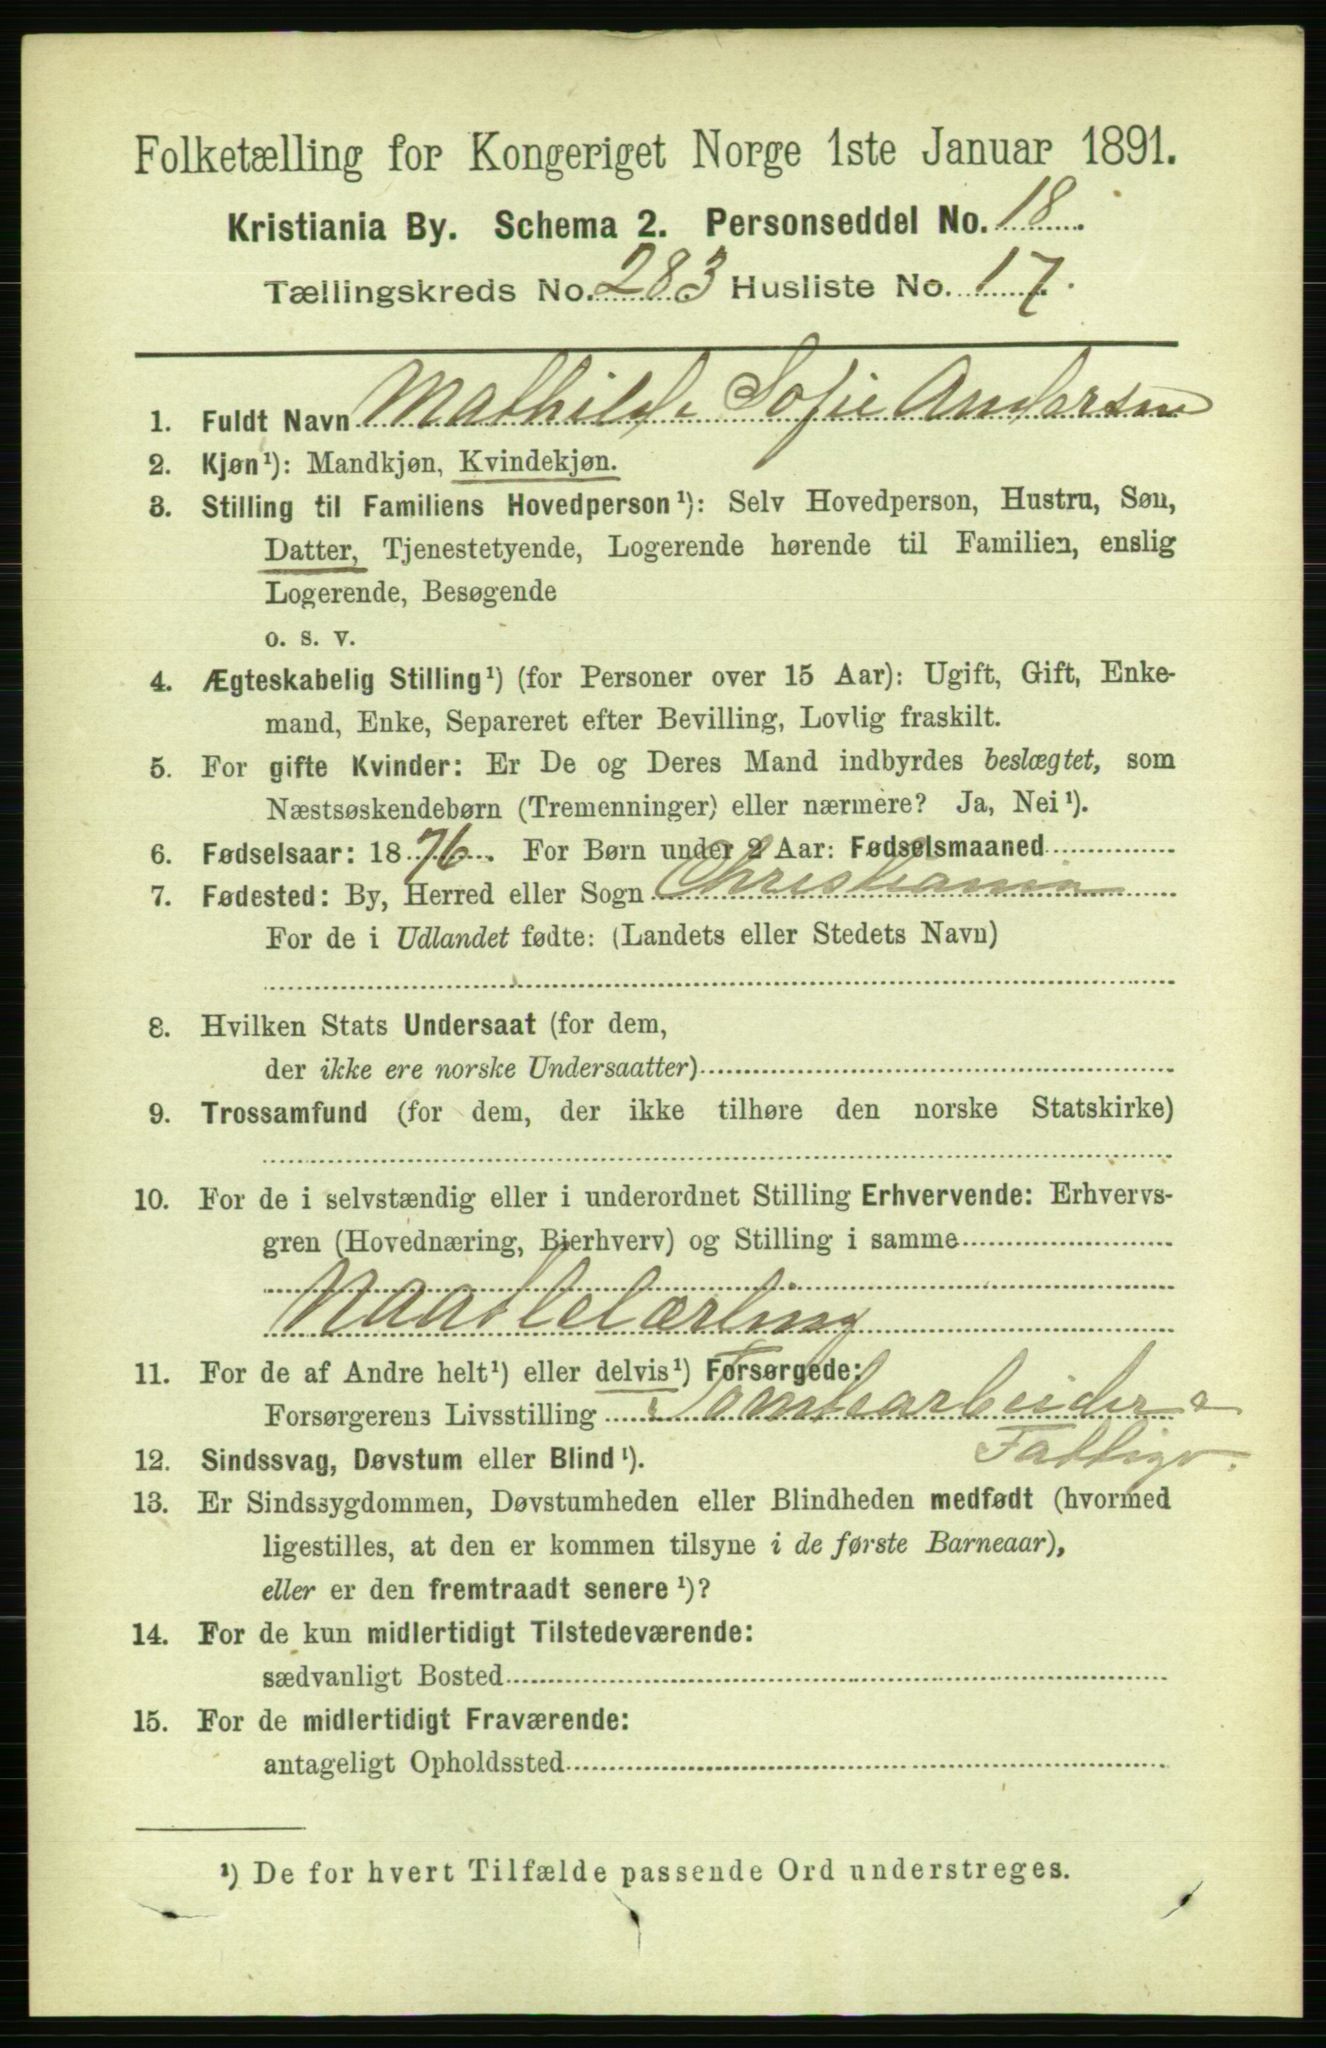 Folketælling for Kongeriget Norge 1ste Januar 1891.
Kristiania By. Schema 2. Personseddel No. 18.
Tællingskreds No. 283 Husliste No. 17.
1. Fuldt Navn Mathilde Sofie Andersen
2. Kjøn¹): Mandkjøn, Kvindekjøn.
3. Stilling til Familiens Hovedperson¹): Selv Hovedperson, Hustru, Søn,
Datter, Tjenestetyende, Logerende hørende til Familien, enslig
Logerende, Besøgende
o. s. v.
4. Ægteskabelig Stilling¹) (for Personer over 15 Aar): Ugift, Gift, Enke-
mand, Enke, Separeret efter Bevilling, Lovlig fraskilt.
5. For gifte Kvinder: Er De og Deres Mand indbyrdes beslægtet, som
Næstsøskendebørn (Tremenninger) eller nærmere? Ja, Nei¹).
6. Fødselsaar: 1876. For Børn under 2 Aar: Fødselsmaaned
7. Fødested: By, Herred eller Sogn Christiania
For de i Udlandet fødte: (Landets eller Stedets Navn)
8. Hvilken Stats Undersaat (for dem,
der ikke ere norske Undersaatter)
9. Trossamfund (for dem, der ikke tilhøre den norske Statskirke)
10. For de i selvstændig eller i underordnet Stilling Erhvervende: Erhvervs-
gren (Hovednæring, Bierhverv) og Stilling i samme
Naadlelærling
11. For de af Andre helt¹) eller delvis¹) Forsørgede:
Forsørgerens Livsstilling Tomtearbeider
Fattigv.
12. Sindssvag, Døvstum eller Blind¹).
13. Er Sindssygdommen, Døvstumheden eller Blindheden medfødt (hvormed
ligestilles, at den er kommen tilsyne i de første Barneaar),
eller er den fremtraadt senere¹)?
14. For de kun midlertidigt Tilstedeværende:
sædvanligt Bosted
15. For de midlertidigt Fraværende:
antageligt Opholdssted
¹) De for hvert Tilfælde passende Ord understreges.